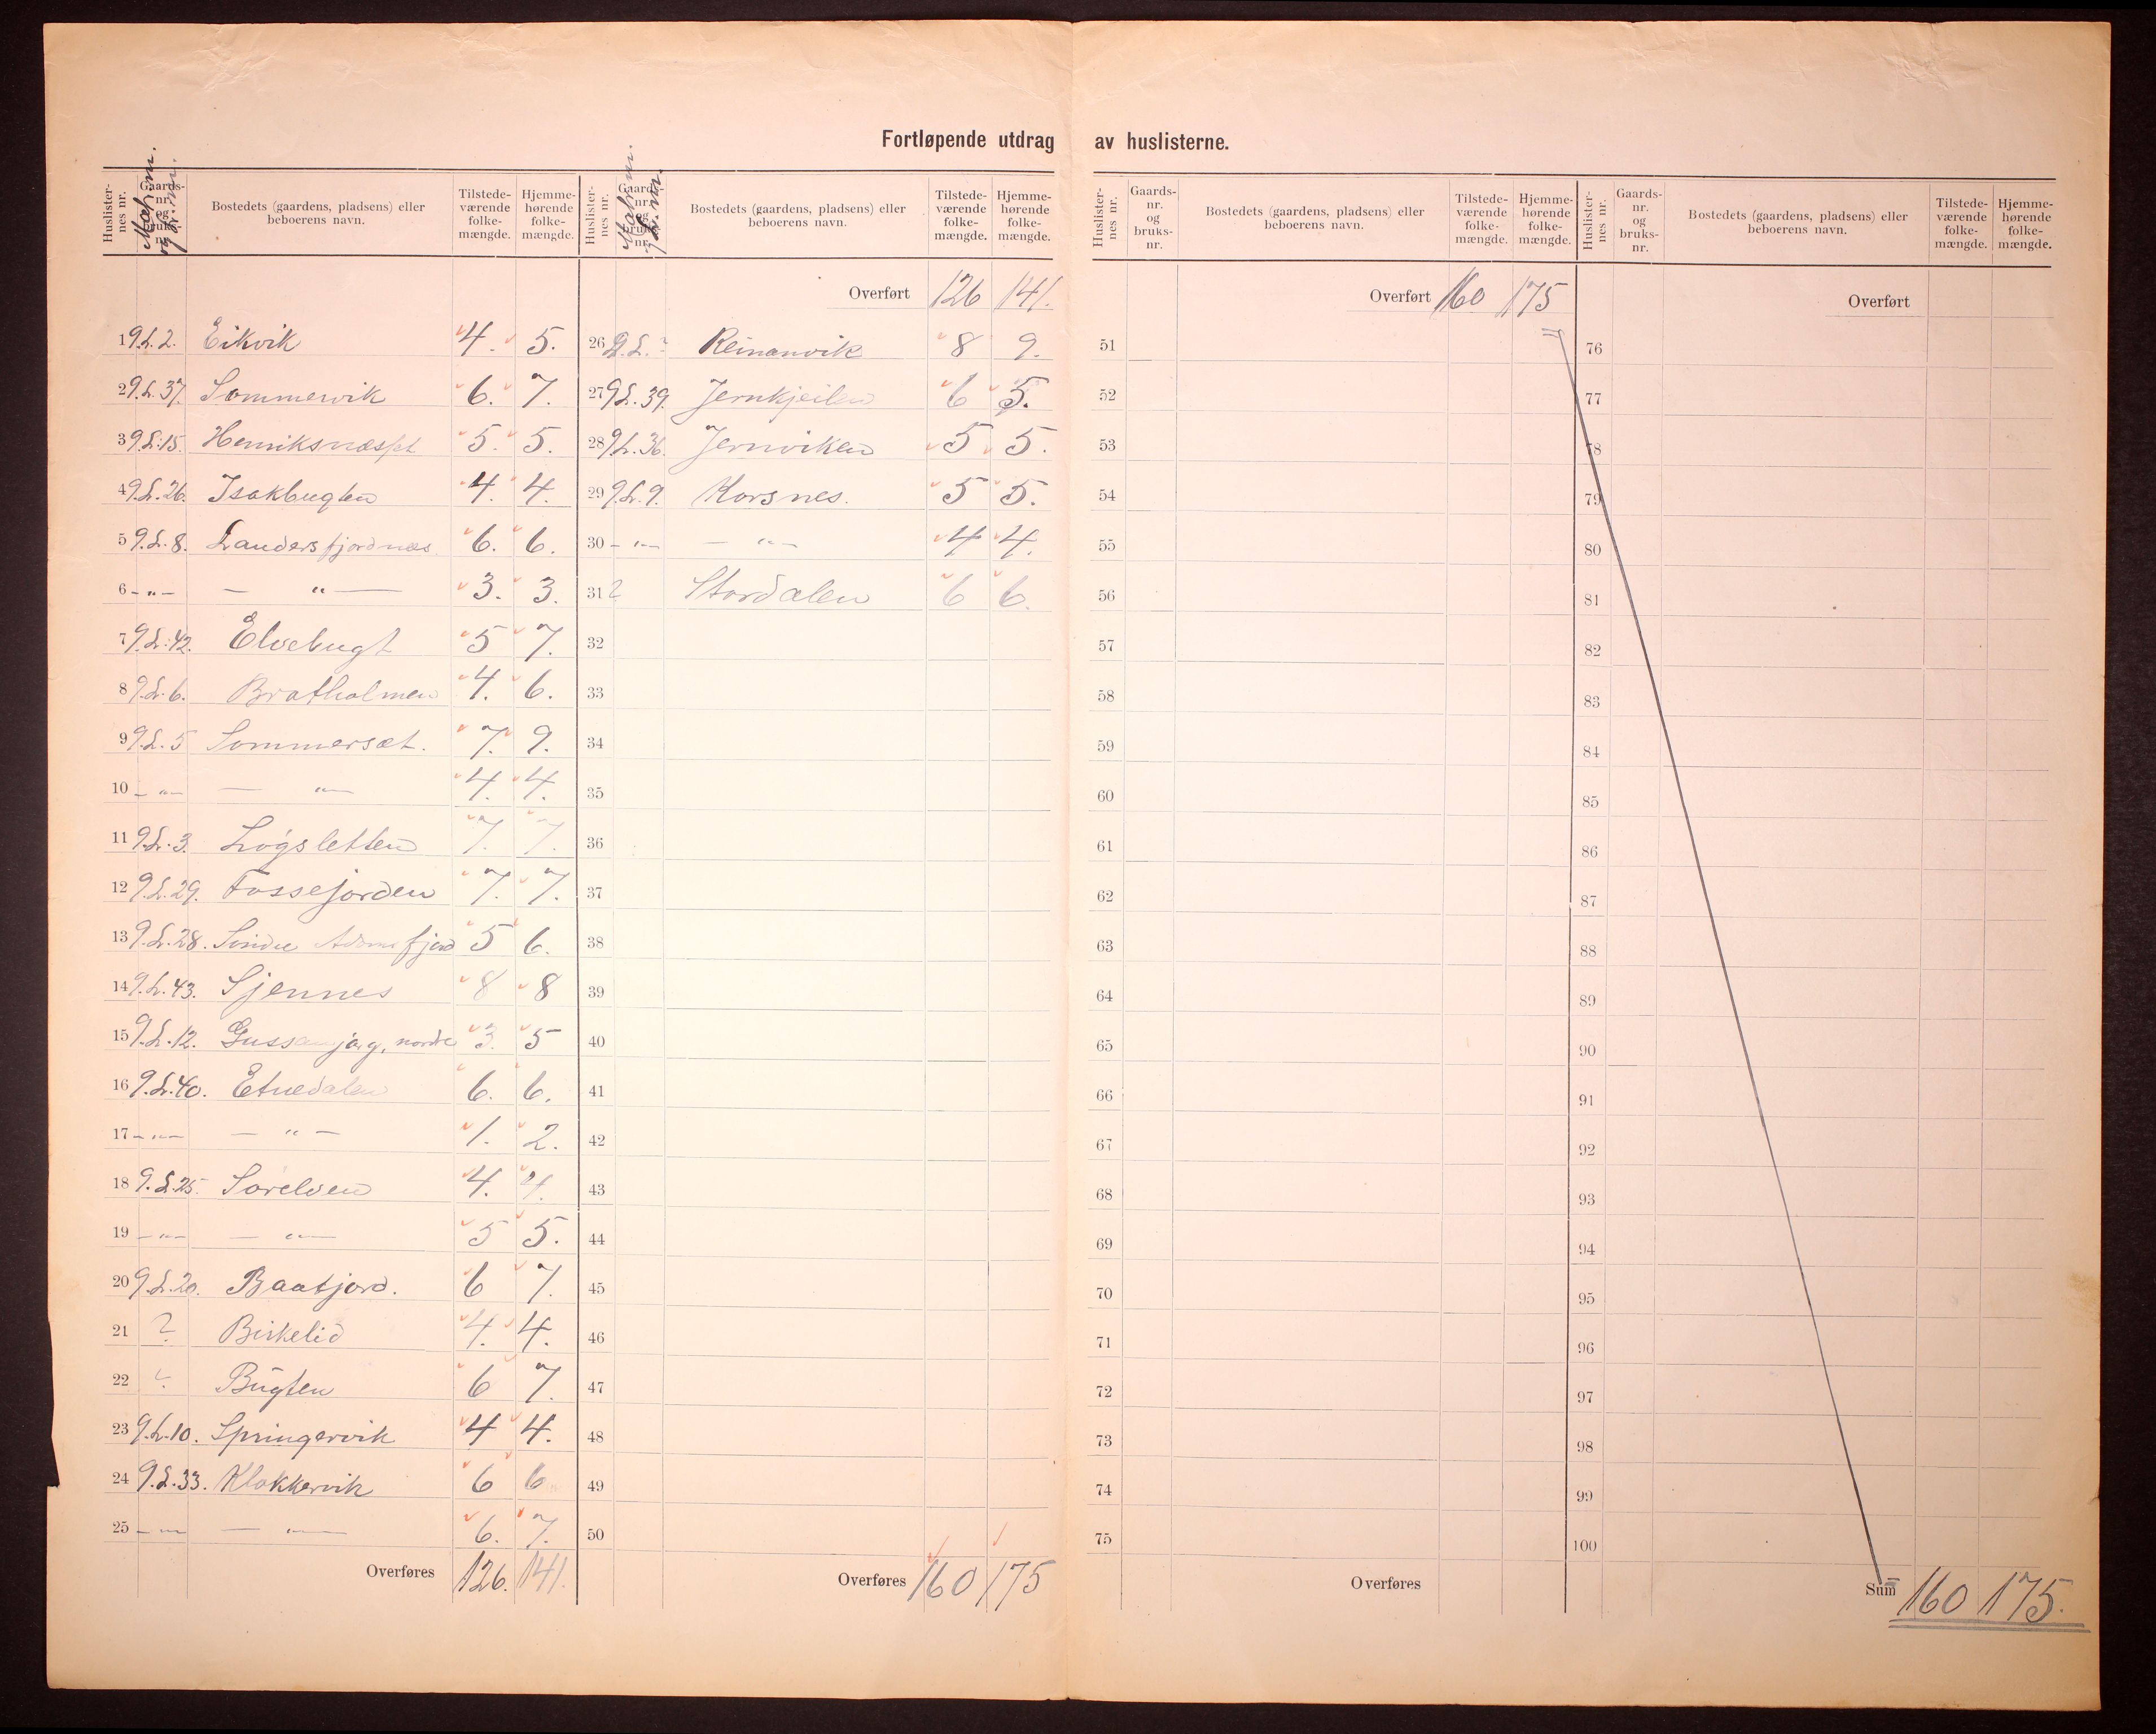 Fortløpende utdrag av huslisterne.
Huslister-nes nr. Gaards-nr. og bruks-nr. Bostedets (gaardens, pladsens) eller beboerens navn. Tilstede-værende folke-mængde. Hjemme-hørende folke-mængde.
1 9.L.2. Eikvik 4. 5.
2 9.L.37. Sommervik 6. 7.
3 9.L.15. Henriksnæsset 5. 5.
4 9.L.26. Isakbugten 4. 4.
5 9.L.8. Landersfjordnæs. 6. 6.
6 - " - - " - 3. 3.
7 9.L.42. Elvebugt 5 7.
8 9.L.6. Bratholmen 4. 6.
9 9.L.5 Sommersæt. 7. 9.
10 - " - - " - 4. 4.
11 9.L.3. Løgsletten 7. 7.
12 9.L.29. Fossejorden 7. 7.
13 9.L.28. Søndre Adamsfjord 5 6.
14 9.L.43. Sjennes 8 8
15 9.L.12. nordre 3. 5
16 9.L.40. 6. 6.
17 - " - - " - 1. 2.
18 9.L.25. Sørelven 4. 4.
19 - " - - " - 5 5.
20 9.L.20. Baatjord. 6 7.
21 ? Birkelid 4. 4.
22 Bugten 6 7.
23 9.L.10. Springervik 4 4.
24 9.L.33. Klokkervik 6 6
25 - " - - " - 6. 7.
Overføres 126. 141.
Huslister-nes nr. Gaards-nr. og bruks-nr. Bostedets (gaardens, pladsens) eller beboerens navn. Tilstede-værende folke-mængde. Hjemme-hørende folke-mængde.
Overført 126 141.
26 9.L. ? Reinanvik 8 9.
27 9.L.39. Jernkjeilen 6 5.
28 9.L.36. Jernviken 5 5.
29 9.L.9. Korsnes. 5 5.
30 - " - - " - 4 4.
31 ? Stordalen 6 6.
32
33
34
35
36
37
38
39
40
41
42
43
44
45
46
47
48
49
50
Overføres 160 175
Huslister-nes nr. Gaards-nr. og bruks-nr. Bostedets (gaardens, pladsens) eller beboerens navn. Tilstede-værende folke-mængde. Hjemme-hørende folke-mængde.
Overført 160 175
51
52
53
54
55
56
57
58
59
60
61
62
63
64
65
66
67
68
69
70
71
72
73
74
75
Overføres
Huslister-nes nr. Gaards-nr. og bruks-nr. Bostedets (gaardens, pladsens) eller beboerens navn. Tilstede-værende folke-mængde. Hjemme-hørende folke-mængde.
Overført
76
77
78
79
80
81
82
83
84
85
86
87
88
89
90
91
92
93
94
95
96
97
98
99
100
Sum 160 175.